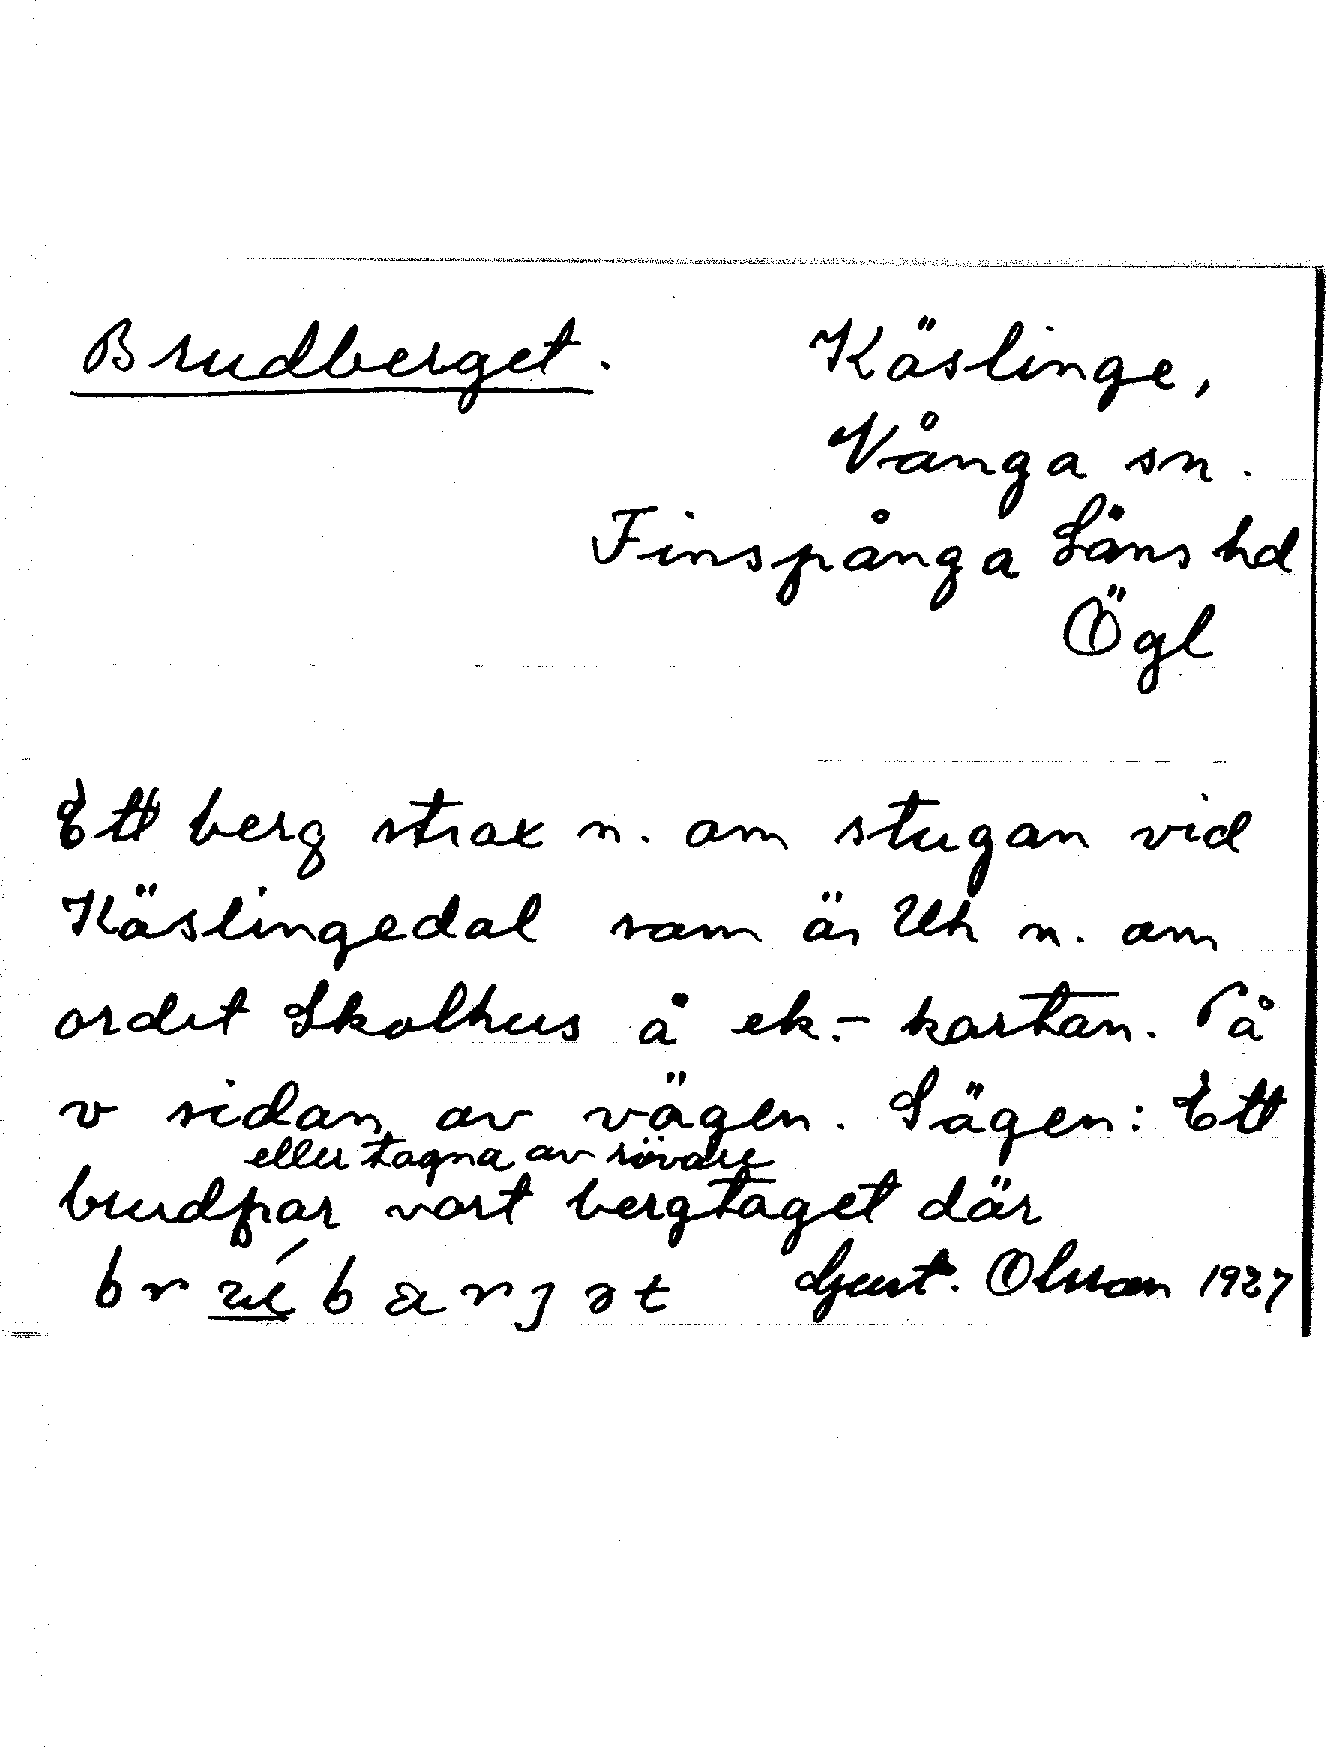 Brudberget. Käslinge,
Vånga sn.
Finspånga Läns hd
Ögl
Ett berg strax n. om stugan vid
Käslingedal som är Uh n. om
ordet Skolhus å ek.- kartan. På
v sidan av vägen. Sägen: Ett
eller tagna av rövare
brudpar vart bergtaget där
Gust. Olsson 1927